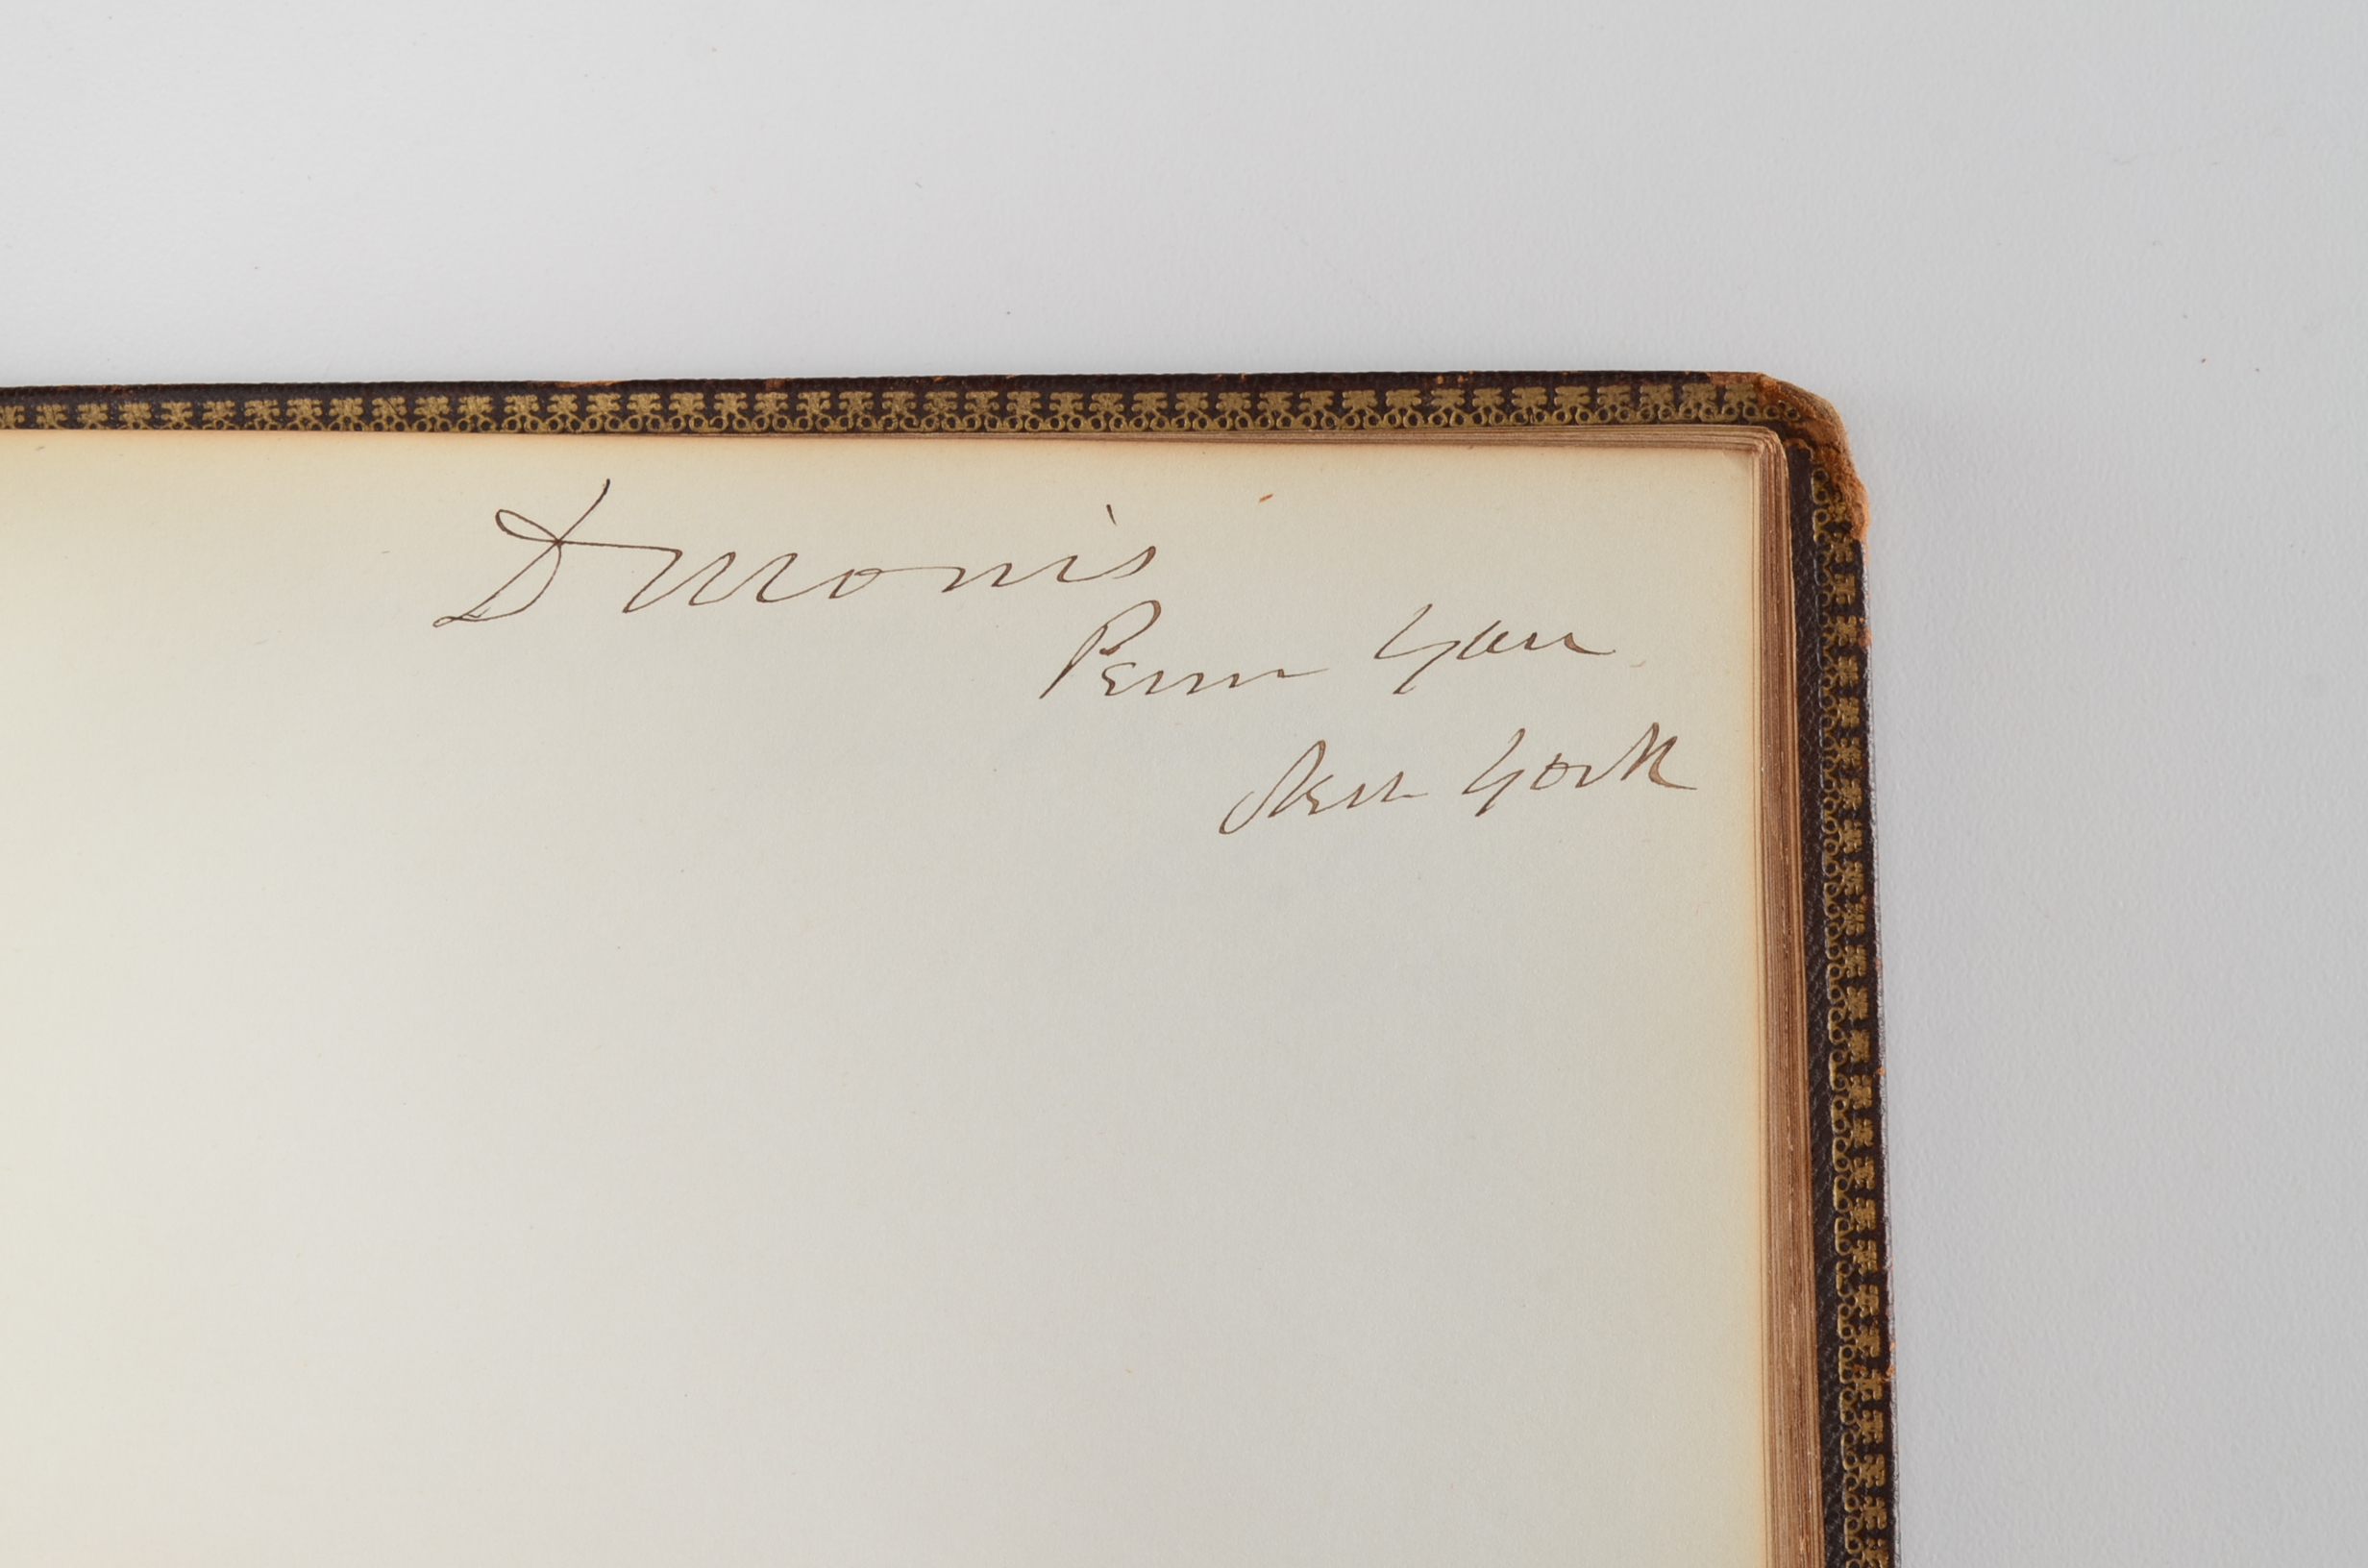 D Morris
Penn Yan
New York